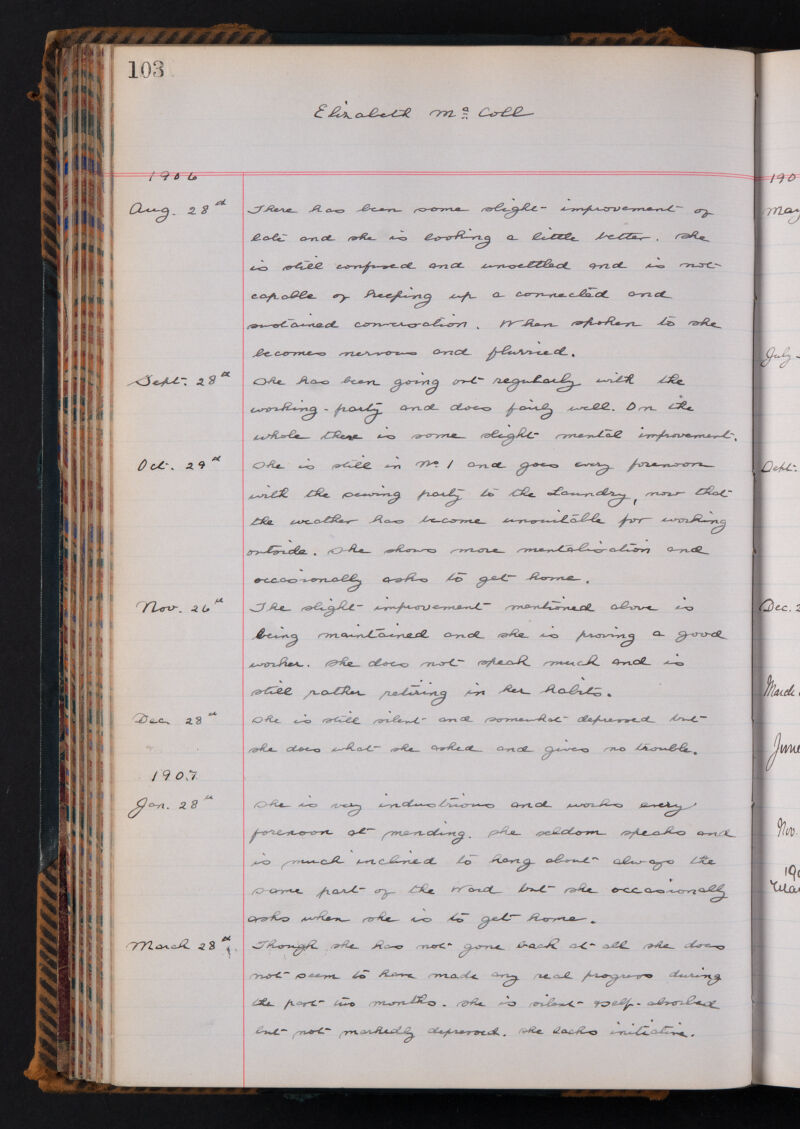 103
Elizabeth Mc Coll
1906
Aug. 28th There has been some slight improvement of
late and she is looking a little better. She
is still confused and unsettled and is not
capable of keeping up a connected and
sustained conversation. When spoken to she
becomes nervous and flurried.
Sept. 28th She has been going out regularly with the
working-party and does fairly well. On the
whole there is some slight mental improvement.
Oct. 29th She is still in No. 1 and goes every forenoon
with the sewing party to the Laundry, now that
the weather has become unsuitable for working
outside. She shows more mentalisation and
occasionally asks to get home.
Nov. 26th The slight improvement mentioned above is
being maintained and she is proving a good
worker. She does not speak much and is
still rather retiring in her habits.
Dec. 28th She is still silent and somewhat depressed but
she does what she asked and gives no trouble.
1907
Jan. 28th She is very industrious and works every
forenoon at mending. She seldom speaks and
is much inclined to hang about always the
same part of the Ward but she occasionally
asks when she is to get home.
March 28th. Though she has not gone back at all she does
not seem to have made any real progress during
the past two months. She is silent & self-absorbed
but not markedly depressed. She lacks initiative.
190
May
July
Sept.
Dec. 2
March
June
Nov.
190